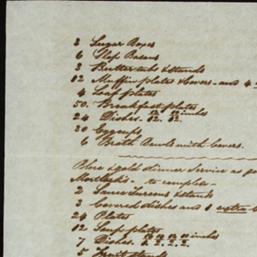 2 Sugar Boxes
6 Slop Basons
3 Butter tubs & stands
12 Muffin plates & Covers - and 4
4 Loaf plates
50. Breakfast plates
24 Dishes - 12. 12. inches
30 Eggcups
6 Broth Bowls with Covers.
Blue & gold Dinner Service as
Mortlock's - to complete -
2 Sauce Tureens & stands
3 Covered dishes and 1 extra
24 Plates
12 Soup plates
7 Dishes. inches 2. 2. 2. 2.
5 Fruit stands